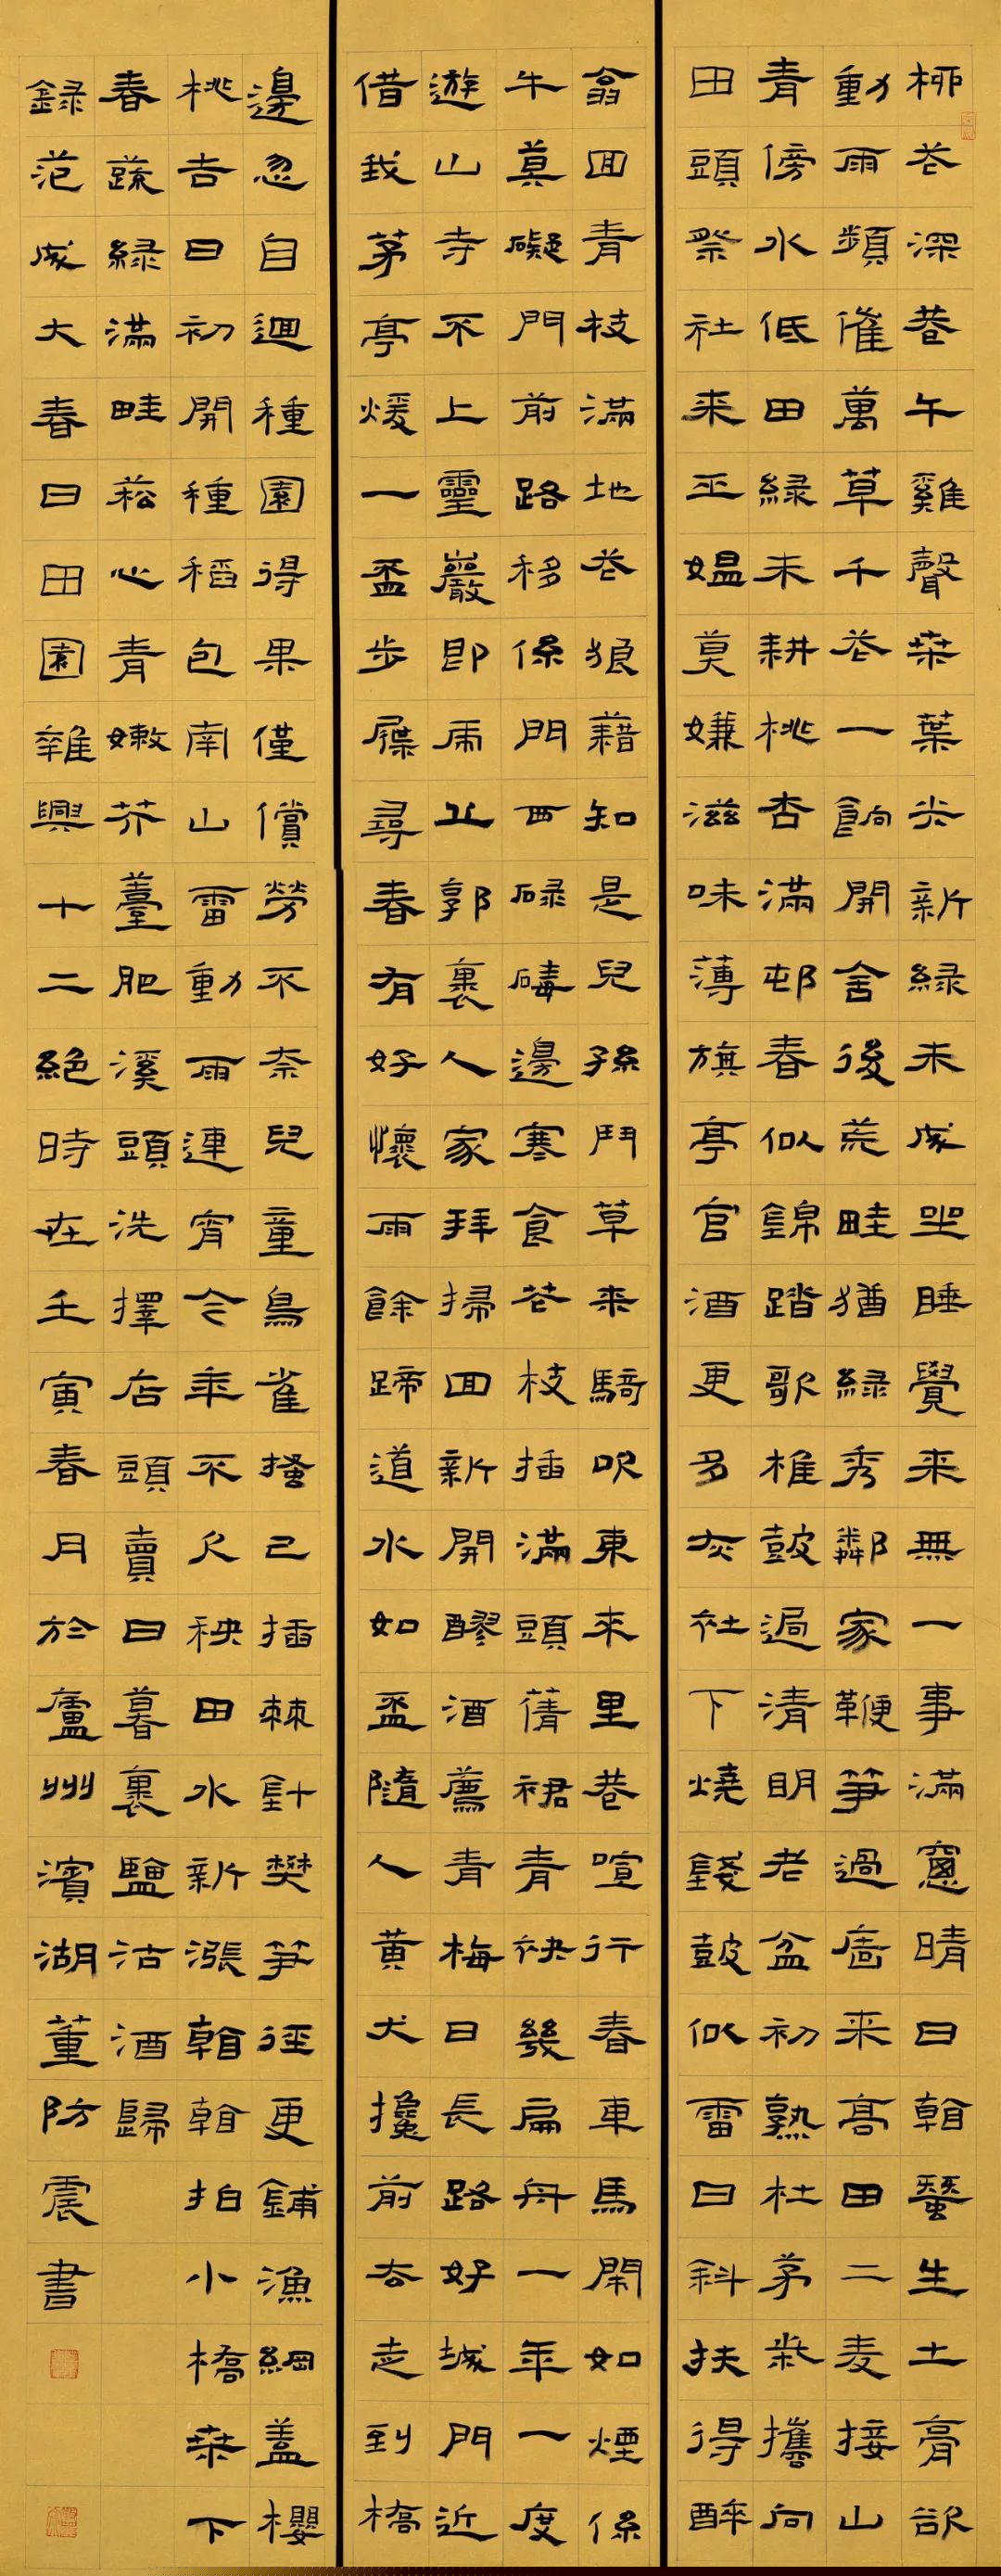 柳花深巷午雞聲桑葉尖新緑未成坐睡覺来無一事滿窻晴日看蠶生土膏欲
動雨頻催萬草千花一餉開舍後荒畦猶緑秀鄰家鞭笋過牆来高田二麦接山
青傍水低田緑未耕桃杏滿邨春似錦踏歌椎鼓過清明老盆初熟杜茅柴攜向
田頭祭社来巫媪莫嫌滋味薄旗亭官酒更多灰社下燒錢鼓似雷日斜扶得醉
翁回青枝滿地花狼藉知是兒孫鬥草来騎吹東来里巷喧行春車馬閙如煙係
牛莫礙門前路移係門西碌碡邊寒食花枝插滿頭蒨裙青袂幾扁舟一年一度
遊山寺不上靈巖即虎丘郭裏人家拜掃回新開醪酒薦青梅日長路好城門近
借我茅亭煖一盃步屧尋春有好懷雨餘蹄道水如盃隨人黄犬攙前去走到橋
邊忽自迴種園得果僅償勞不奈兒童鳥雀搔已插棘針樊笋徑更鋪漁網蓋櫻
桃吉日初開種稻包南山雷動雨連宵今年不欠秧田水新漲看看拍小橋桑下
春蔬緑滿畦菘心青嫩芥薹肥溪頭洗擇店頭賣日暮裏鹽沽酒歸
録范成大春日田園雜興十二絕時在壬寅春月於廬州濱湖董防震書